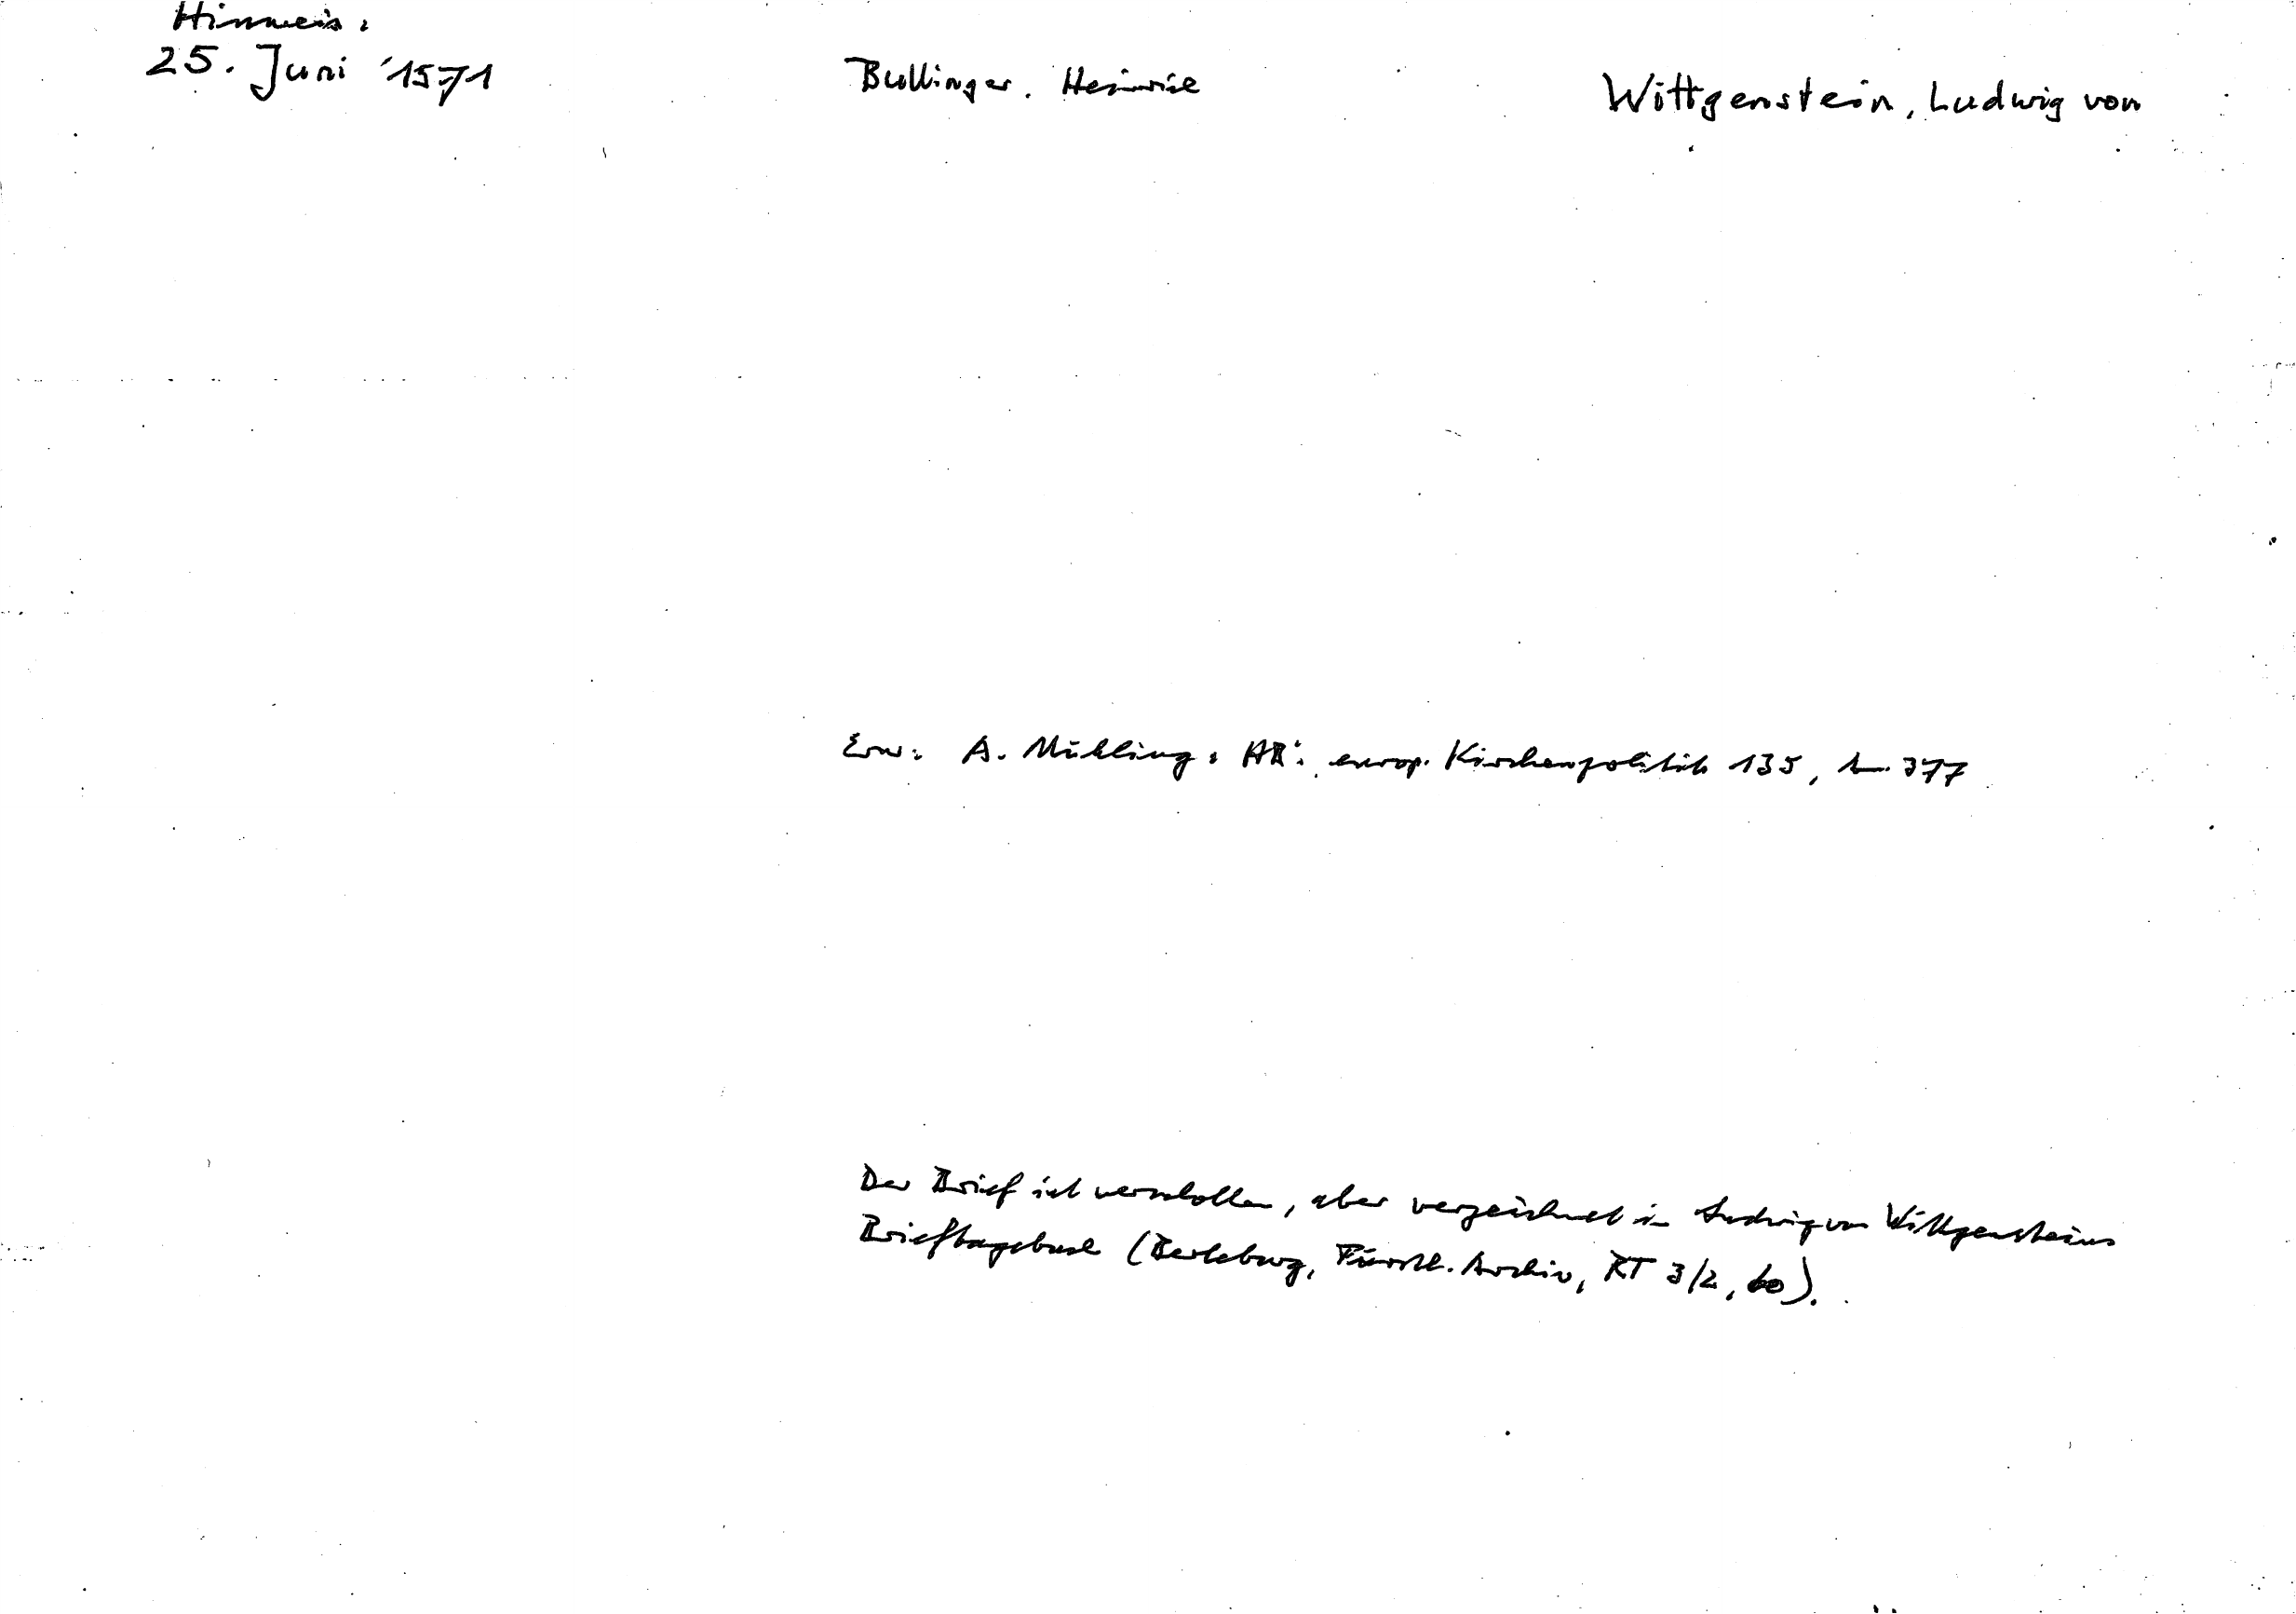 Hinweis:
25. Juni 1571
Bullinger, Heinrich
Wittgenstein, Ludwig von
Erw: A. Mühling: HB's europ. Kirchenpolitik 135, 377
Der Brief ist verschollen, aber verzeichnet in Ludwig von Wittgensteins
Brieftagebuch (Berleburg, Fürstl. Archiv, RT 3/2, 60).